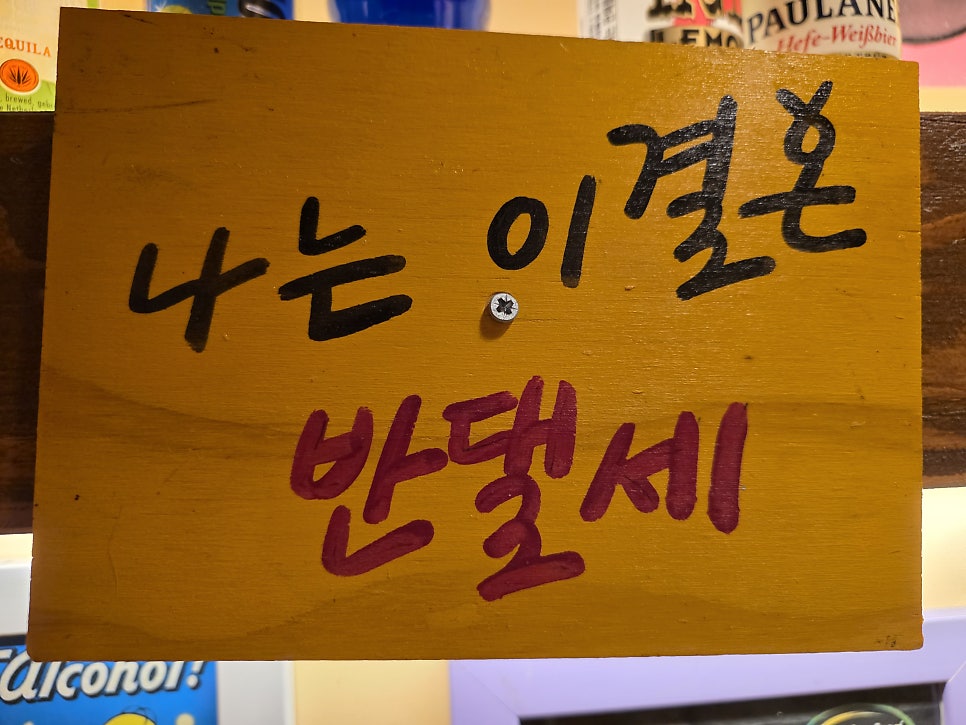 EQUILA
brewed,
PAULANE
Hefe-Weißbier
나는 이 결혼
반댈세
alcohol!